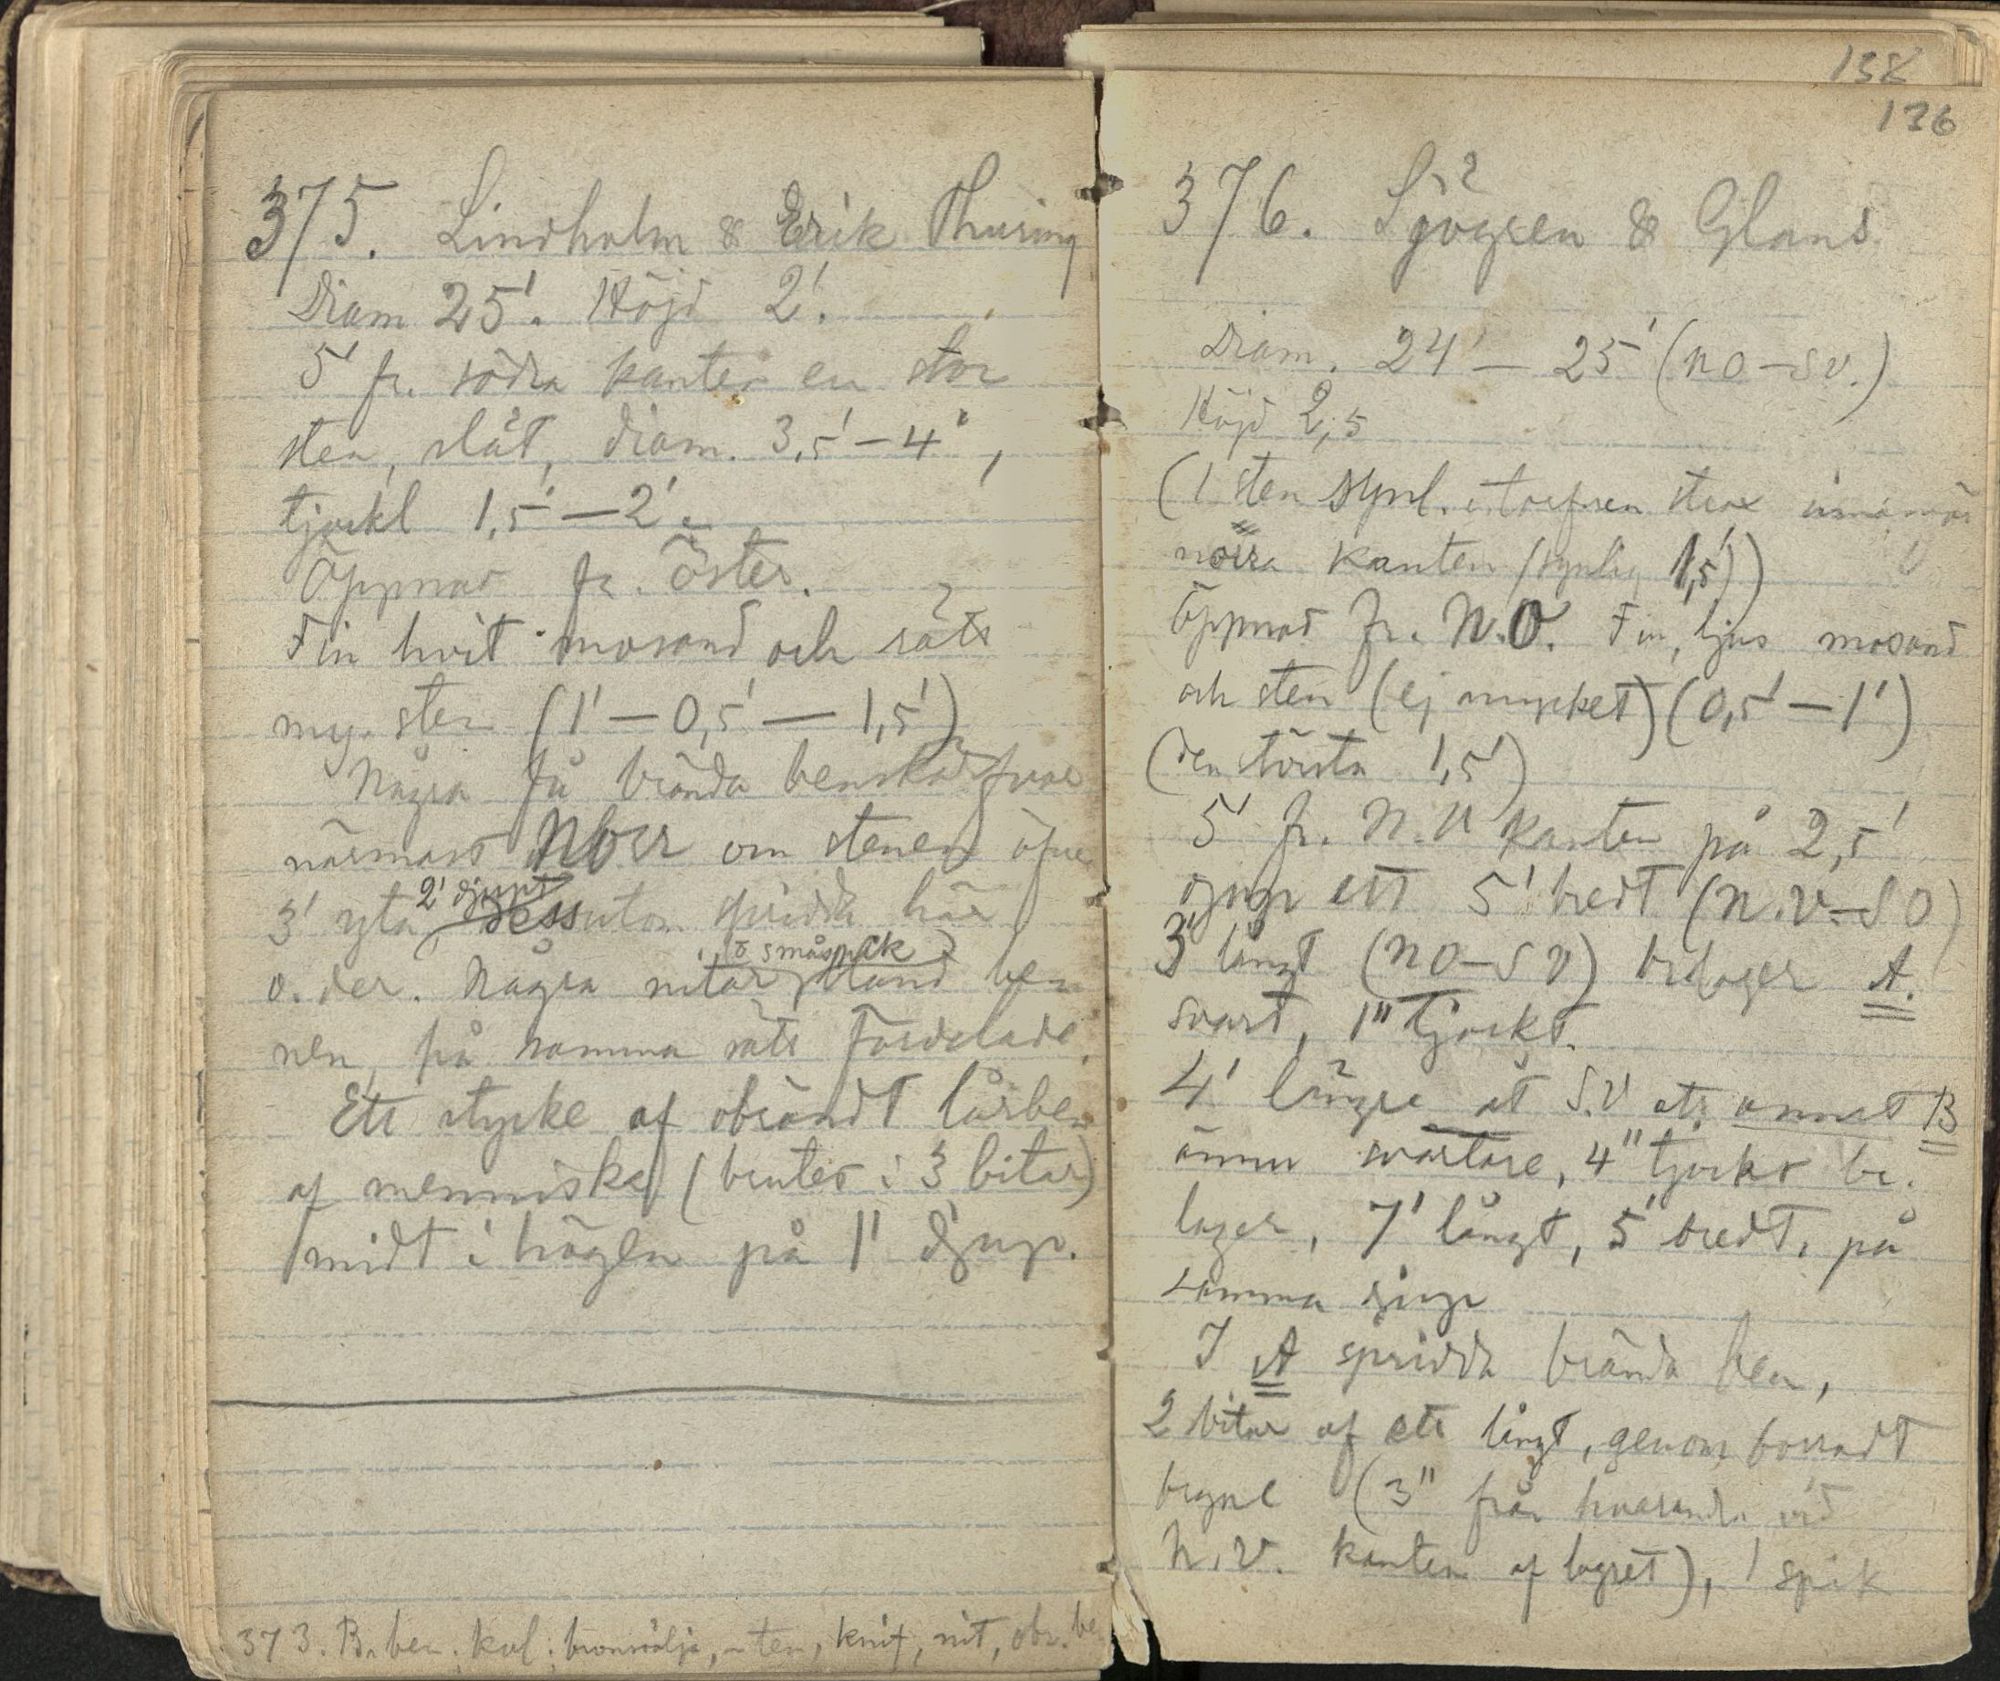 375. Lindholm & Erik Thuring
Diam 25'. Höjd 2'.
5' fr. södra kanten en stor
sten, slät, diam. 3,5'–4',
tjockl 1,5'–2'.
Öppnad fr. Öster.
Fin hvit mosand och rätt
my. sten (1'–0,5'–1,5')
Några få brända benskärfvor
närmast Norr om stenen öfver
3' yta, 2' djupt
dessutom spridda här
o. der. Några nitar o småspik bland be-
nen, på samma sätt fördelade.
Ett stycke af obrändt lårben
af menniska (brutet i 3 bitar)
midt i högen på 1' djup.
373. Br. ben. kol: bronssölja, -ten, knif, nit, obr. be
138
136
376. Sjögren & Glans
Diam. 24'–25' (NO–SV.)
Höjd 2,5
(1 sten synl. i torfven strax
norra kanten (synlig 1,5'))
Öppnad fr. N.O. Fin, ljus mosand
och sten (ej mycket) (0,5'–1')
(den största 1,5')
5' fr. N.V kanten på 2,5'
djup ett 5' bredt (N.V–SO)
3' långt (NO–SV) brlager A.
svart, 1" tjockt.
4' längre åt S.V ett annat B
ännu svartare, 4" tjockt br.
lager, 7' långt, 5' bredt, på
samma djup
I A spridda brända ben,
2 bitar af ett långt, genom borradt
bryne (3" från hvarandra vid
N.V. kanten af lagret), 1 spik